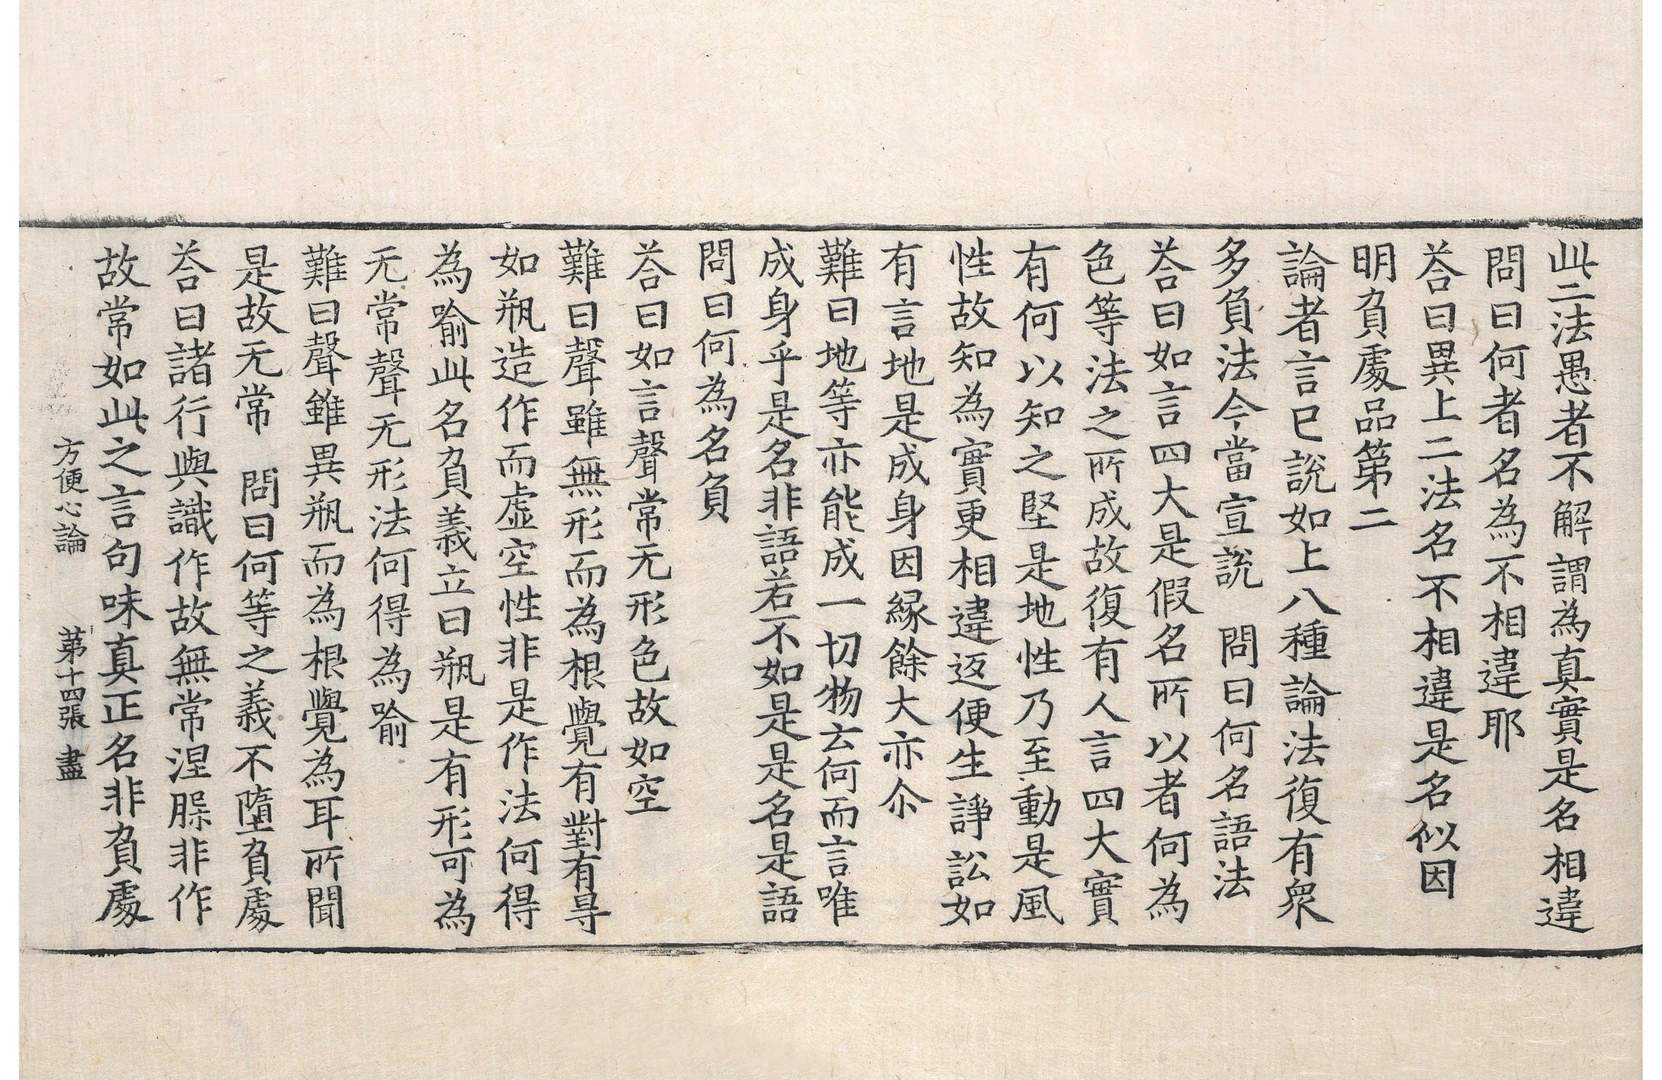 此二法愚者不解謂為真實是名相違
問曰何者名為不相違耶
荅曰異上二法名不相違是名似因
明負處品第二
論者言已說如上八種論法復有衆
多負法今當宣說　問曰何名語法
荅曰如言四大是假名所以者何為
色等法之所成故復有人言四大實
有何以知之堅是地性乃至動是風
性故知為實更相違返便生諍訟如
有言地是成身因縁餘大亦尒
難曰地等亦能成一切物云何而言唯
成身乎是名非語若不如是是名是語
問曰何為名負
荅曰如言聲常无形色故如空
難曰聲雖無形而為根覺有對有㝵
如瓶造作而虛空性非是作法何得
為喻此名負義立曰瓶是有形可為
无常聲无形法何得為喻
難曰聲雖異瓶而為根覺為耳所聞
是故无常　問曰何等之義不墮負處
荅曰諸行與識作故無常涅槃非作
故常如此之言句味真正名非負處
方便心論　第十四張　盡